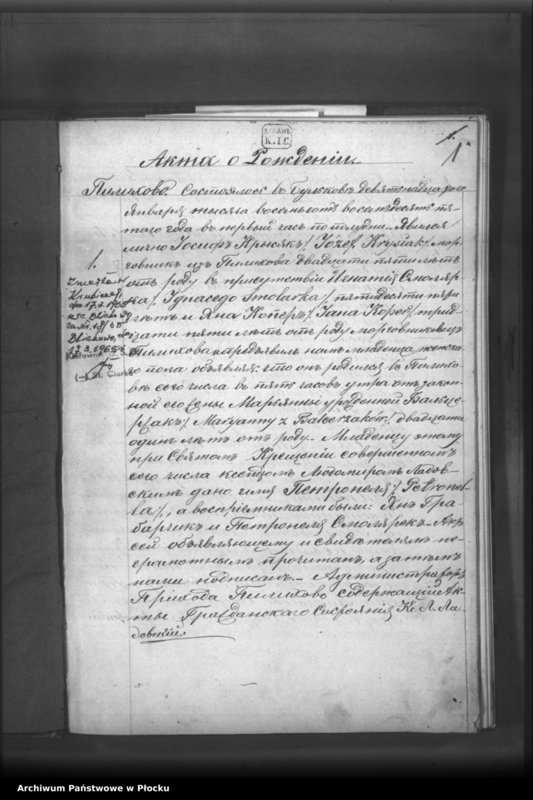 К.I.С.
1
Акта о Рожденiи.
Пилихово Состоялось въ Бульково девятнадцатого
Января тысяча восемьсотъ восемьдесятъ пя-
таго года въ первый часъ по полудни. Явился
лично Iосифъ Крысякъ / Józef Krysiak / мор-
говникъ изъ Пилихова двадцати пяти лѣтъ
отъ роду въ присутствiи Игнатiя Смоляр-
ка / Ignacego Smolarka / пятидесяти
лѣтъ и Яна Коперъ / Jana Koper / трид-
цати пяти лѣтъ отъ роду морговниковъ
Пилихова и предъявилъ намъ младенца женска-
го пола объявляя: что онъ родился въ Пилихо-
вѣ сего числа въ пять часовъ утра отъ закон-
ной его жены Марьянны урожденной Бальце-
ржакъ / Maryanny z Balcerzaków / двадцати
одинъ лѣтъ отъ роду. Младенцу этому
при Святомъ Крещенiи совершенномъ
сего числа ксендзомъ Людомиромъ Ладов-
скимъ дано имя Петронеля / Petronel-
la /, а воспрiемниками были: Янъ Гра-
барчикъ и Петронеля Смолярекъ. Актъ
сей объявляющему и свидѣтелямъ не-
грамотнымъ прочитанъ, а затѣмъ
нами подписанъ. Администраторъ
Прихода Пилихово содержащiй Ак-
ты Гражданскаго Состоянiя Кс. Л. Ла-
довскiй
1.
Zmarła
17.2.1965
USC
18/65
12.3.1965
Archiwum Państwowe w Płocku